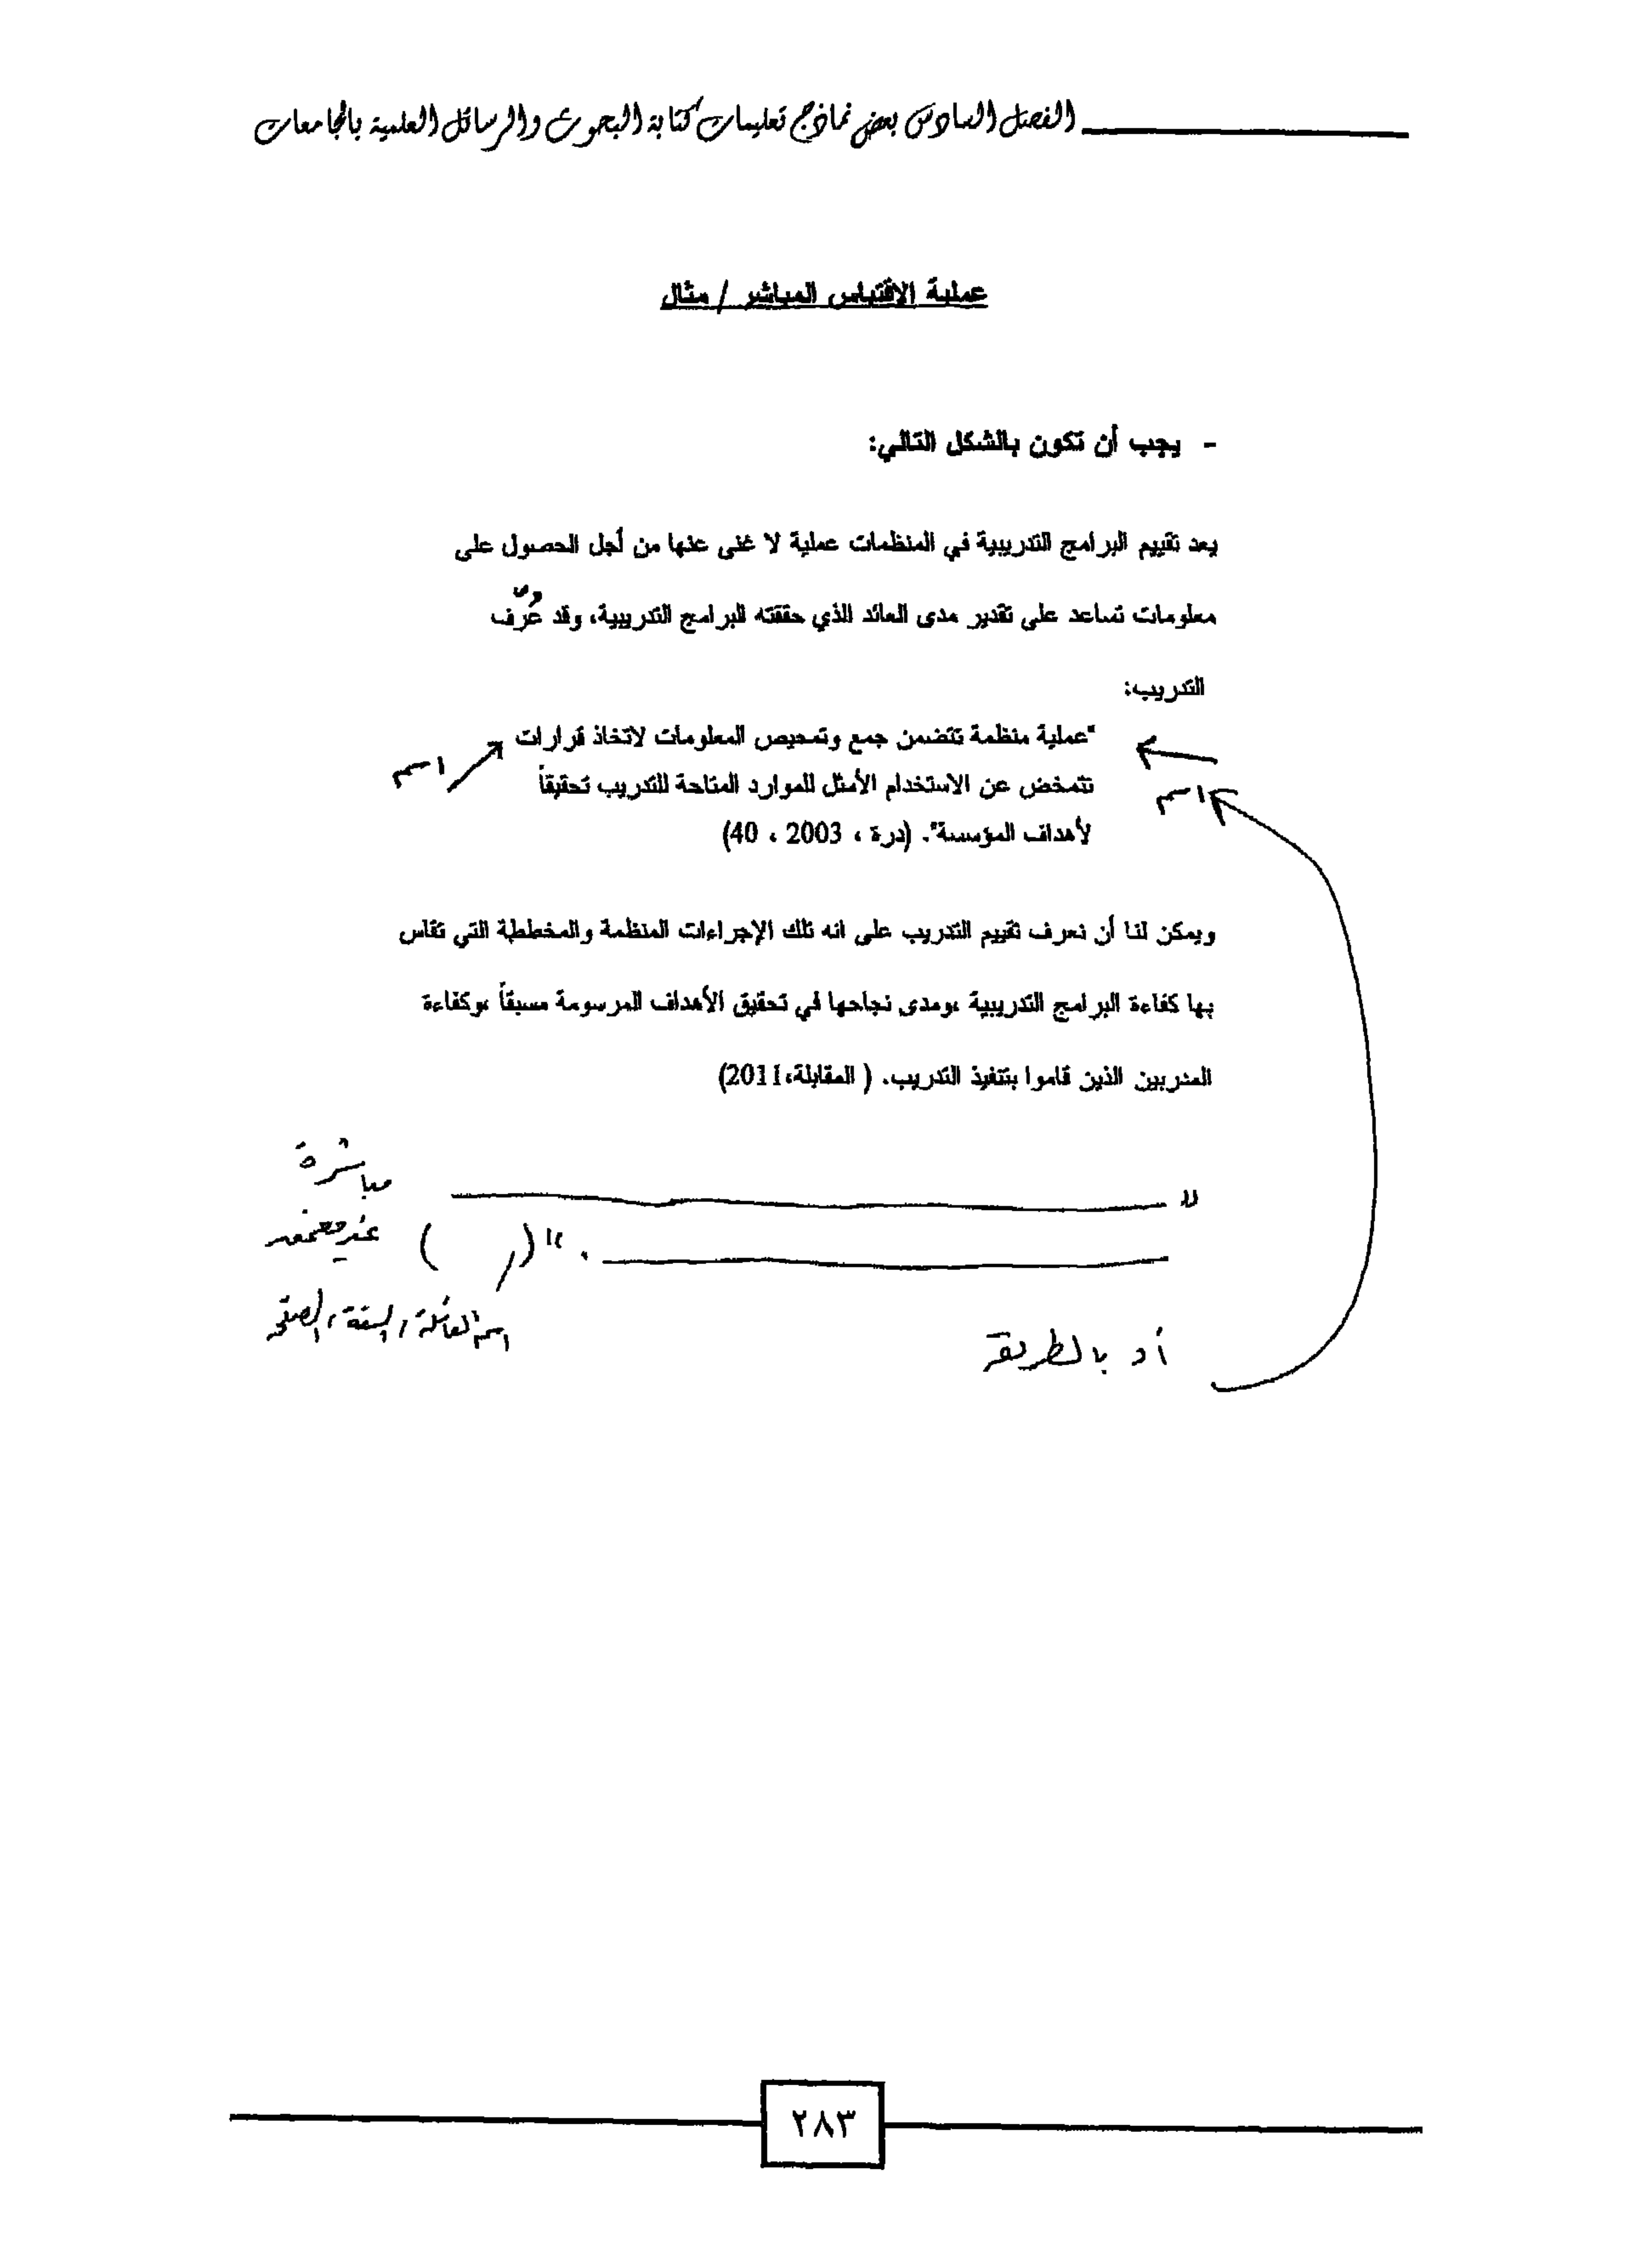 الفصل السادس بعض نماذج تعليمات كتابة البحوث والرسائل العلمية بالجامعات
عملية الاقتباس المباشر / مثال
- يجب أن تكون بالشكل التالي:
يعد تقييم البرامج التدريبية في المنظمات عملية لا غنى عنها من أجل الحصول على
معلومات تساعد على تقدير مدى العائد الذي حققته البرامج التدريبية، وقد عُرّف
التدريب:
"عملية منظمة تتضمن جمع وتمحيص المعلومات لاتخاذ قرارات
اسم
تتمخض عن الاستخدام الأمثل للموارد المتاحة للتدريب تحقيقاً
اسم
لأهداف المؤسسة". (درة ، 2003 ، 40)
ويمكن لنا أن نعرف تقييم التدريب على انه تلك الإجراءات المنظمة والمخططة التي تقاس
بها كفاءة البرامج التدريبية ،ومدى نجاحها في تحقيق الأهداف المرسومة مسبقاً ،وكفاءة
المدربين الذين قاموا بتنفيذ التدريب. ( المقابلة،2011)
مباشرة
"
." ( )
اسم العائلة، السنة، الصفحة
أو بالطريقة
٢٨٣